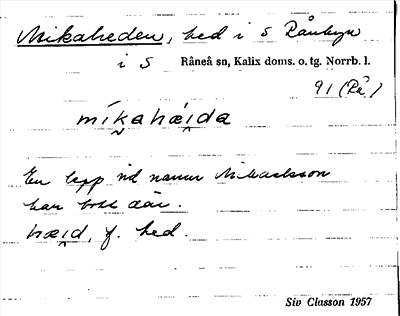 Mikaheden, hed i S Rånbyn
i S Råneå sn, Kalix doms. o. tg. Norrb. l.
91 (Rå)
míkahæida
En lapp vid namn Mikaelsson
har bott där.
hæid, f. hed.
Siv Classon 1957